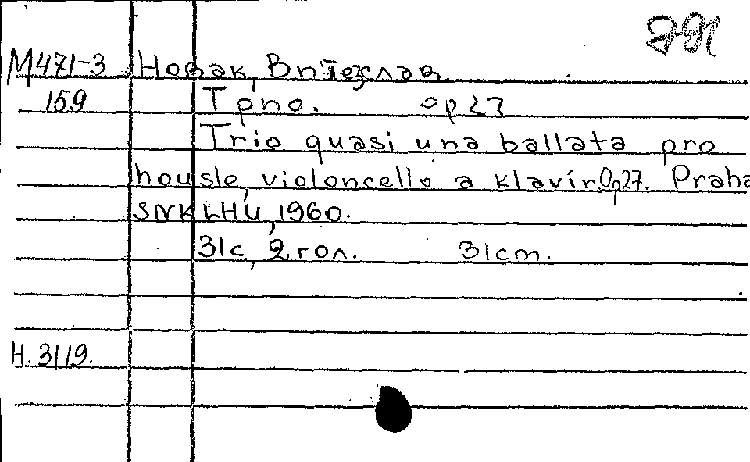 791
М471-3 Новак, Витеслав
159 Трио. op 27
Trio quasi una ballata pro
housle, violoncello a klavír. Op 27. Praha
SNKLHU, 1960.
31с, 2 гол. 31cm.
Н. 3119.